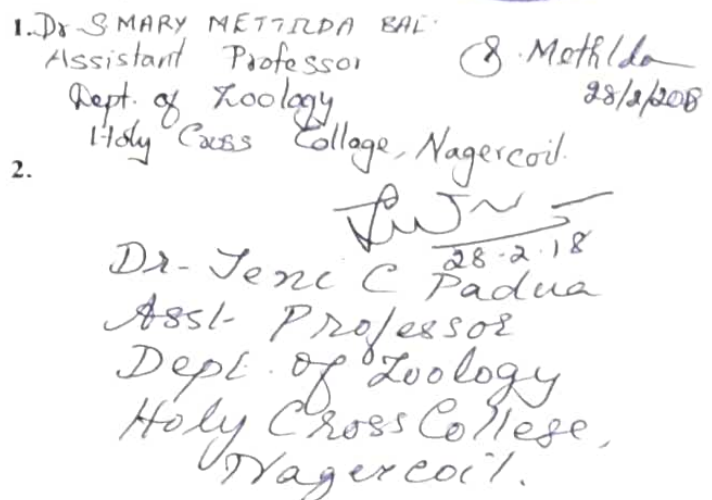 1. Dr S. MARY METTILDA BAI.
Assistant Professor
S. Methilda
28/2/208
Dept. of Zoology
Holy Cross Collage, Nagercoil.
2.
28-2-18
Dr- Jeni C Padua
Asst- Professor
Dept. of Zoology
Holy Cross College,
Nagercoil.